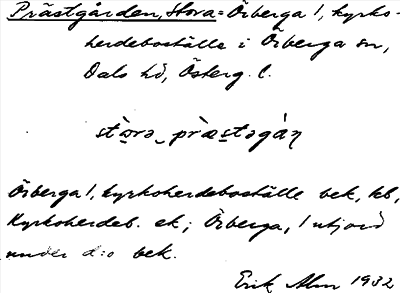 Prästgården, Stora = Örberga 1, kyrko-
herdeboställe i Örberga sn,
Dals hd, Österg. l.
stò̱rə‿præ̀s̱təgáη
Örberga 1, kyrkoherdeboställe bek, kb,
Kyrkoherdeb. ek; Örberga, 1 utjord
under d:o bek.
Erik Alm 1932